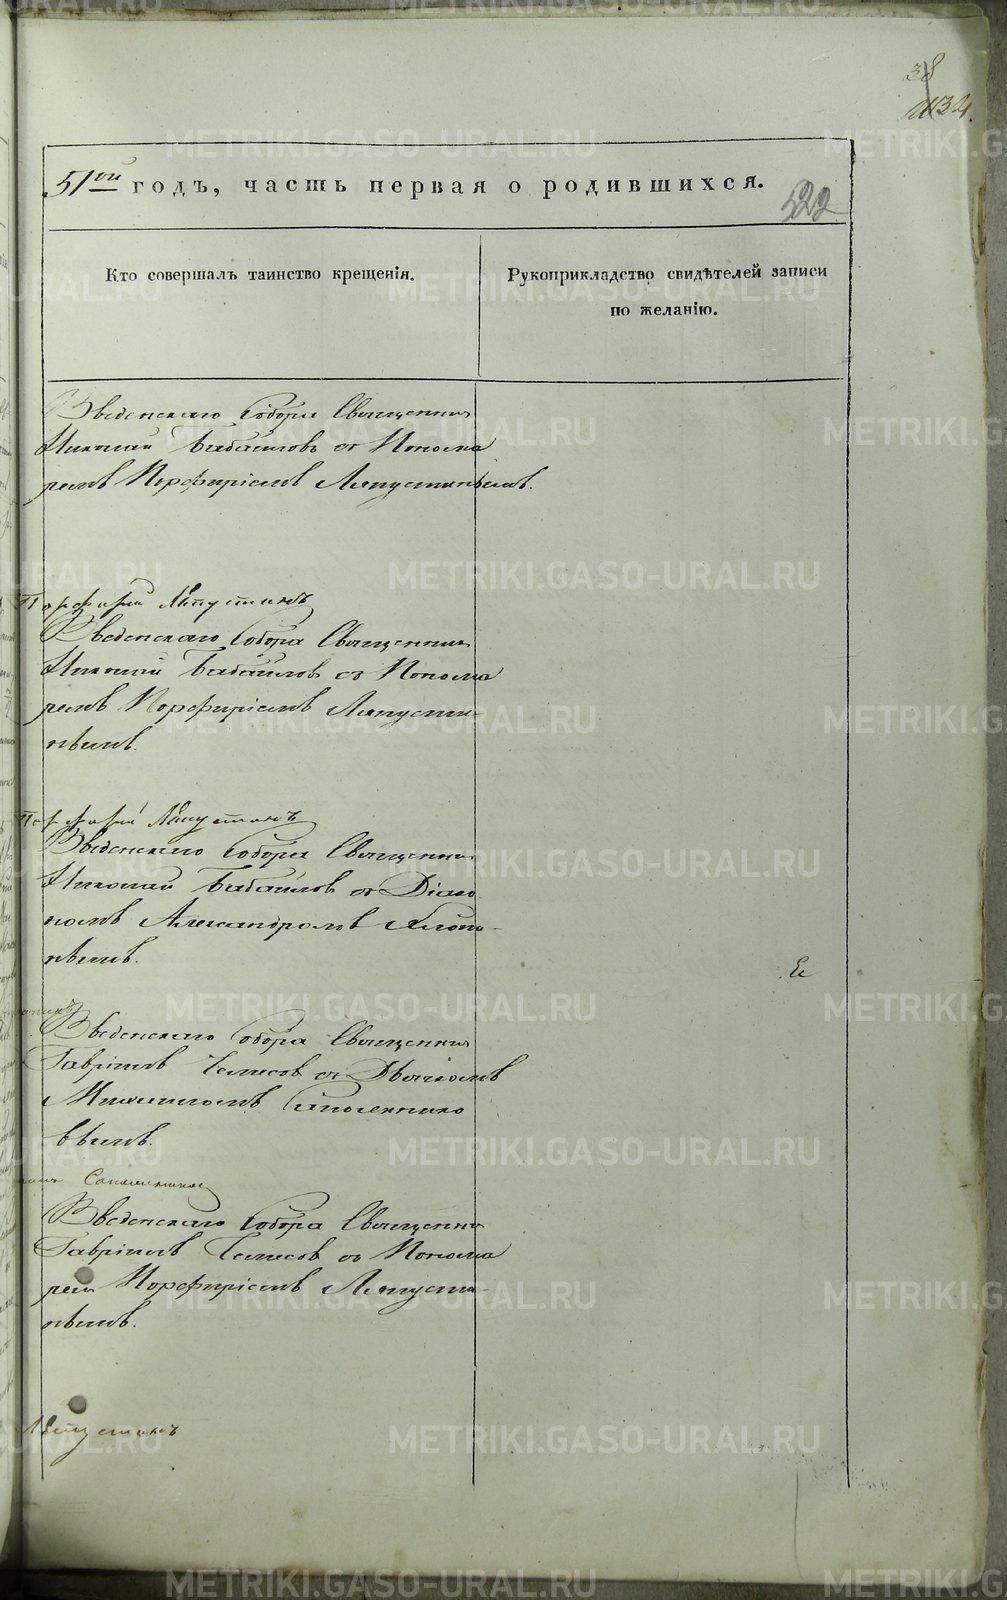 38
134.
51ой годъ, часть первая о родившихся.
522
Кто совершалъ таинство крещенія.
Рукоприкладство свидѣтелей записи
по желанію.
Введенскаго Собора Священникъ
Николай Бабайловъ съ Понома
ремъ Порфиріемъ Ляпустинымъ.
Порфирій Ляпустинъ
Введенскаго Собора Священникъ
Николай Бабайловъ съ Понома
ремъ Порфиріемъ Ляпусти-
нымъ.
Порфирій Ляпустинъ
Введенскаго Собора Священникъ
Николай Бабайловъ съ Діако
номъ Александромъ
нымъ.
Введенскаго Собора Священникъ
Гавріилъ съ Дьячкомъ
Михаиломъ Сапожнико
вымъ.
Введенскаго Собора Священникъ
Гавріилъ съ Понома
ремъ Порфиріемъ Ляпусти-
нымъ.
Ляпустинъ
METRIKI.GASO-URAL.RU